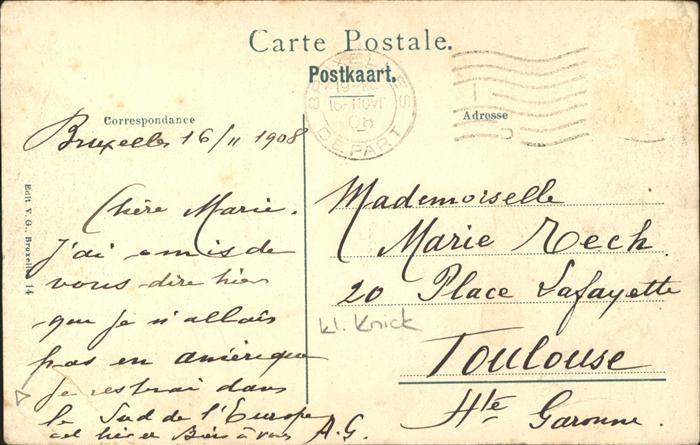 Carte Postale.
Postkaart.
BRUXELLES
16-NOV
08
DEPART
Correspondance
Adresse
Bruxelles 16/11 1908
Chère Marie.
J'ai omis de
vous dire hier
que je n'allais
pas en amérique
Je resterai dans
le Sud de l'Europe
cet hiver à vous A.G.
Mademoiselle
Marie Rech
20 Place Lafayette
Toulouse
Hte Garonne.
kl. Knick
Edit V. G., Bruxelles 14